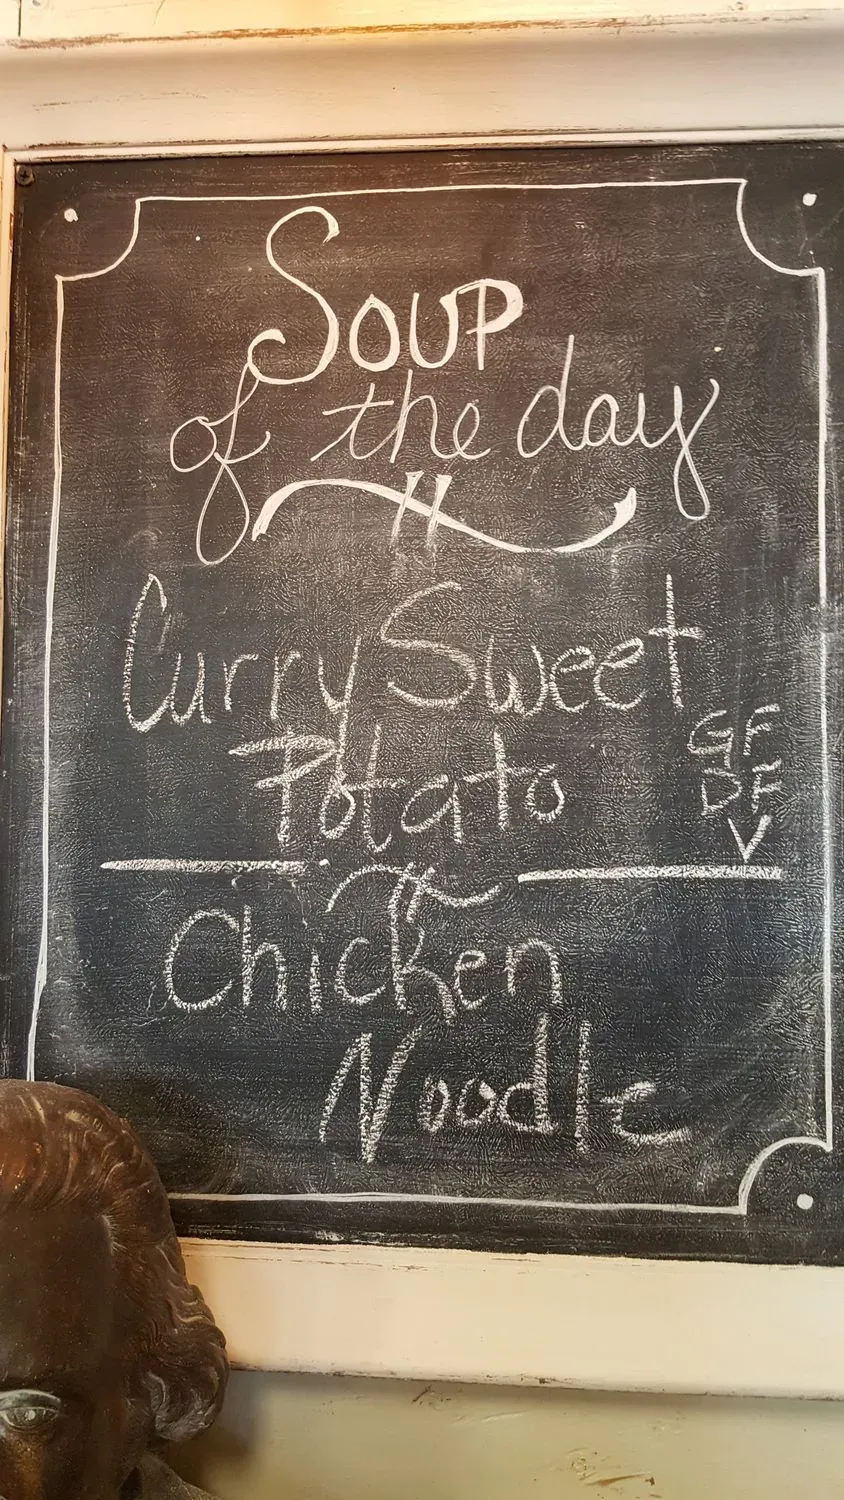 Soup
of the day
Curry Sweet
Potato
GF
DF
V
Chicken
Noodle